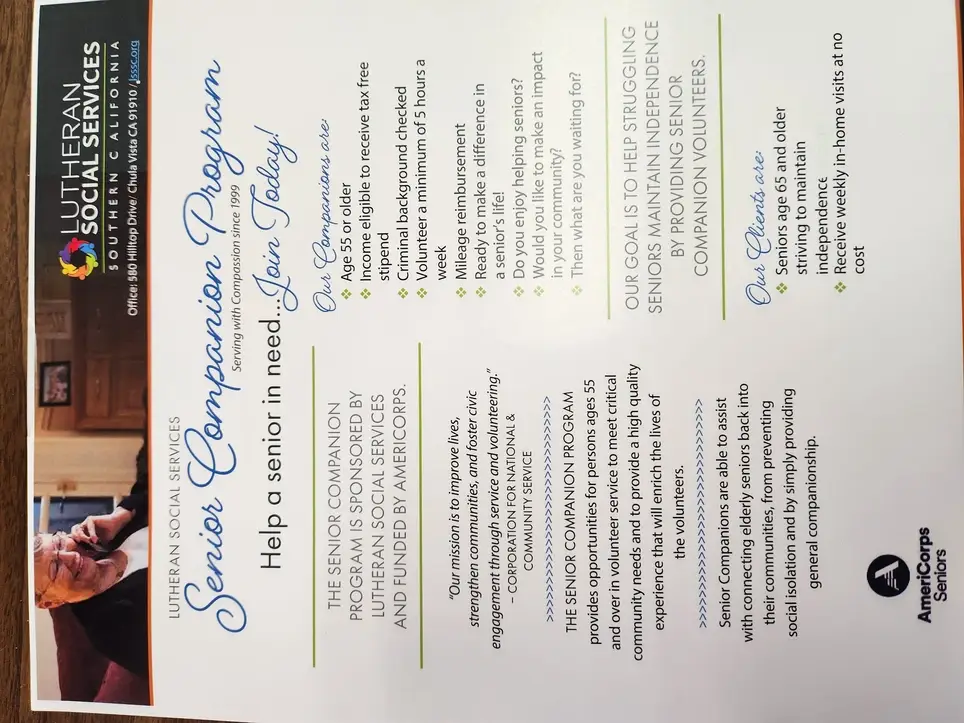 LUTHERAN
SOCIAL SERVICES
SOUTHERN CALIFORNIA
Office: 580 Hilltop Drive/ Chula Vista CA 91910 /lsssc.org
LUTHERAN SOCIAL SERVICES
Senior Companion Program
Serving with Compassion since 1999
Help a senior in need...Join Today!
THE SENIOR COMPANION
PROGRAM IS SPONSORED BY
LUTHERAN SOCIAL SERVICES
AND FUNDED BY AMERICORPS.
“Our mission is to improve lives,
strengthen communities, and foster civic
engagement through service and volunteering.”
– CORPORATION FOR NATIONAL &
COMMUNITY SERVICE
>>>>>>>>>>>>>>>>>>>>>>>>>>>>>>>>
THE SENIOR COMPANION PROGRAM
provides opportunities for persons ages 55
and over in volunteer service to meet critical
community needs and to provide a high quality
experience that will enrich the lives of
the volunteers.
>>>>>>>>>>>>>>>>>>>>>>>>>>>>>>>>
Senior Companions are able to assist
with connecting elderly seniors back into
their communities, from preventing
social isolation and by simply providing
general companionship.
AmeriCorps
Seniors
Our Companions are:
❖ Age 55 or older
❖ Income eligible to receive tax free
stipend
❖ Criminal background checked
❖ Volunteer a minimum of 5 hours a
week
❖ Mileage reimbursement
❖ Ready to make a difference in
a senior's life!
❖ Do you enjoy helping seniors?
❖ Would you like to make an impact
in your community?
❖ Then what are you waiting for?
OUR GOAL IS TO HELP STRUGGLING
SENIORS MAINTAIN INDEPENDENCE
BY PROVIDING SENIOR
COMPANION VOLUNTEERS.
Our Clients are:
❖ Seniors age 65 and older
striving to maintain
independence
❖ Receive weekly in-home visits at no
cost